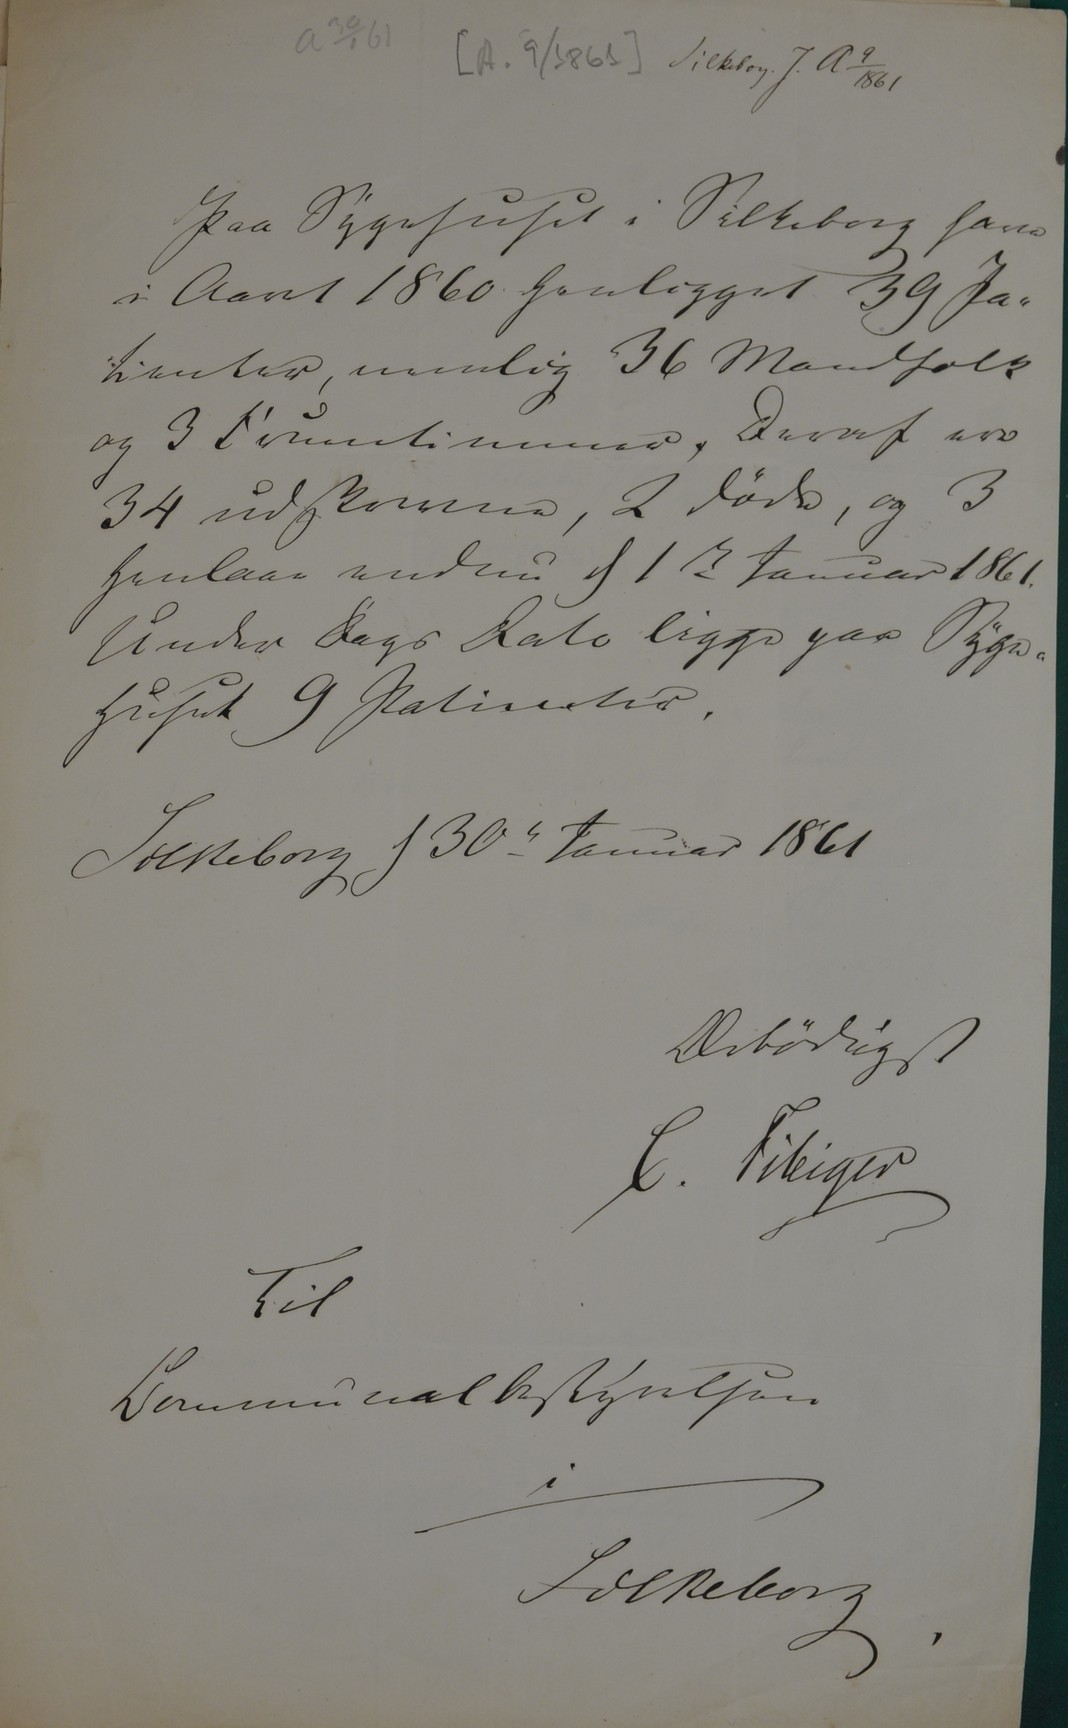 a 30/1 61
[A. 9/1861] Silkeborg. J. A 9/1861
Paa Sygehuset i Silkeborg have
i Aaret 1860 henligget 39 Pa-
tienter, nemlig 36 Mandfolk
og 3 Fruentimmer. Deraf ere
34 udskrevne, 2 döde, og 3
henlaae endnu d 1ste Januar 1861.
Under Dags Dato ligge paa Syge-
huset 9 Patienter.
Silkeborg d 30te Januar 1861
Ærbödigst
C. Fibiger
Til
Communalbestyrelsen
i
Silkeborg.